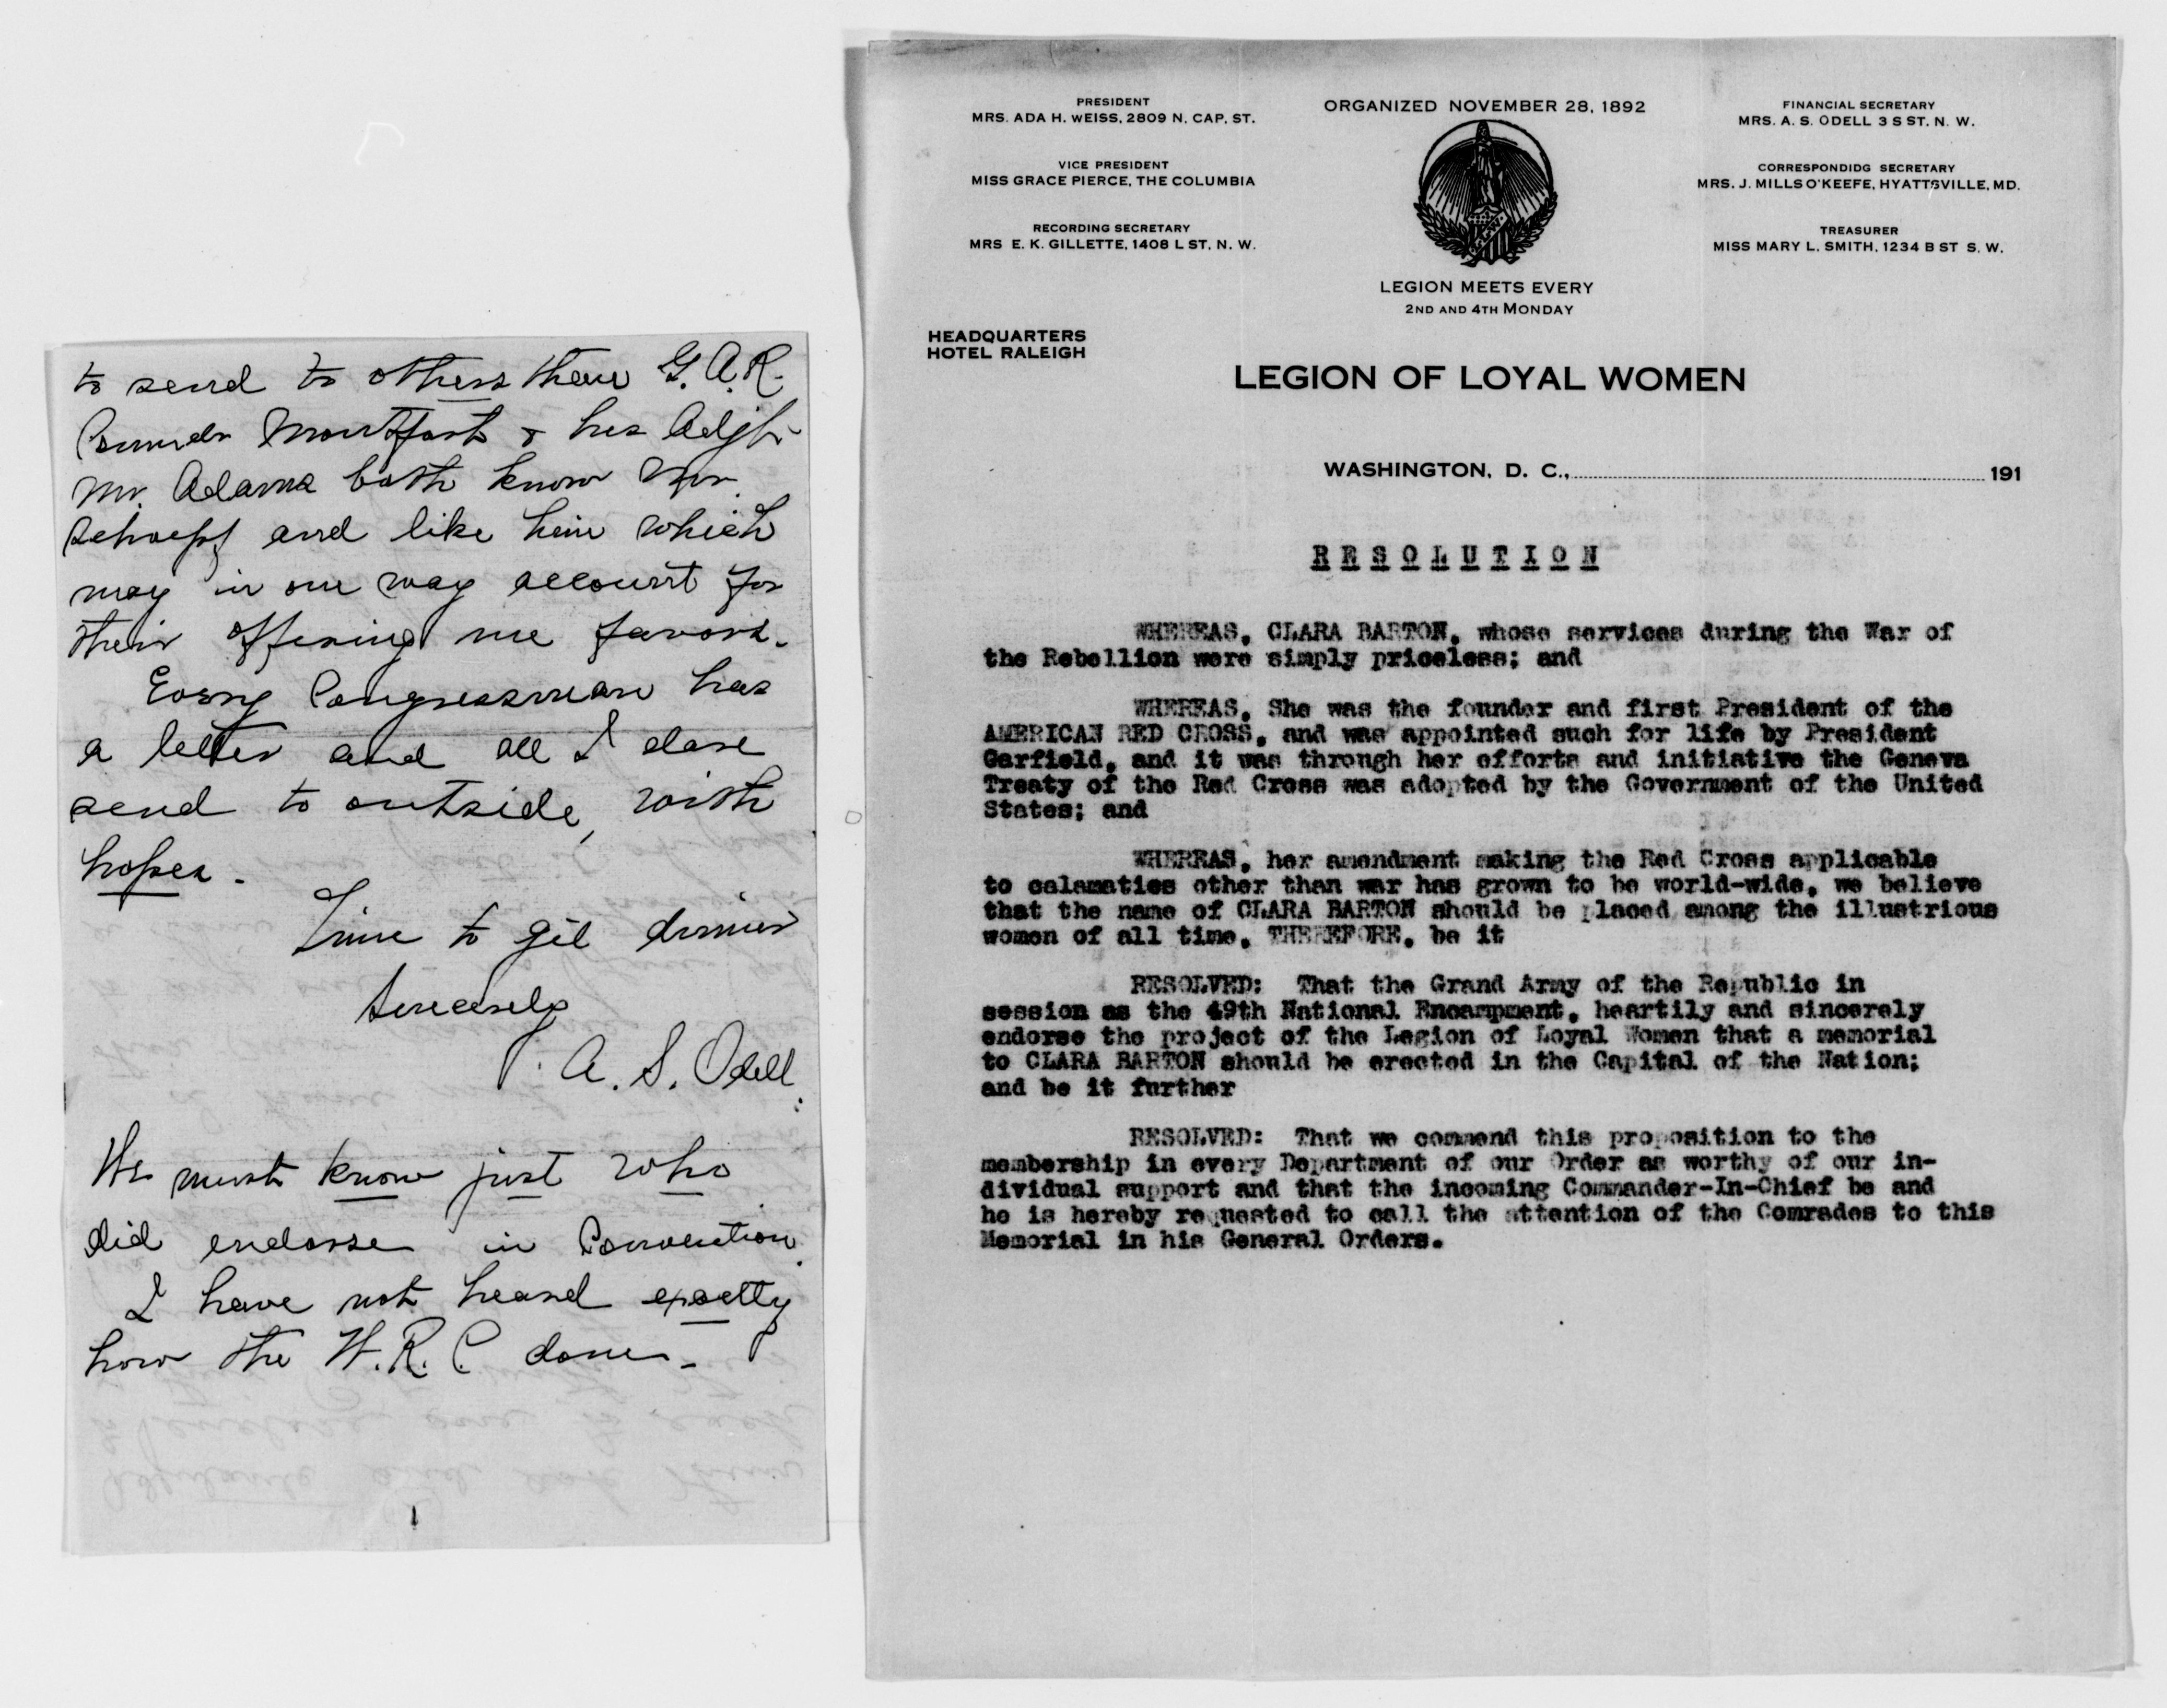 to send to others there G.A.R.
Comndr Montfort & his Adjt
Mr. Adams both know Mr.
Schoepf and like him which
may in one way account for
their offering me favors.
Every Congressman has
a letter and all I dare
send to outside, with
hopes.
Time to get dinner
Sincerely
A. S. Odell.
We must know just who
did endorse in Convention.
I have not heard exactly
how the W.R.C. done.
PRESIDENT
MRS. ADA H. WEISS, 2809 N. CAP. ST.
VICE PRESIDENT
MISS GRACE PIERCE, THE COLUMBIA
RECORDING SECRETARY
MRS E. K. GILLETTE, 1408 L ST, N. W.
ORGANIZED NOVEMBER 28, 1892
LEGION MEETS EVERY
2ND AND 4TH MONDAY
FINANCIAL SECRETARY
MRS. A. S. ODELL 3 S ST. N. W.
CORRESPONDIDG SECRETARY
MRS. J. MILLS O'KEEFE, HYATTSVILLE, MD.
TREASURER
MISS MARY L. SMITH, 1234 B ST S. W.
HEADQUARTERS
HOTEL RALEIGH
LEGION OF LOYAL WOMEN
WASHINGTON, D. C., 191
RESOLUTION
WHEREAS, CLARA BARTON, whose services during the War of
the Rebellion were simply priceless; and
WHEREAS, She was the founder and first President of the
AMERICAN RED CROSS, and was appointed such for life by President
Garfield, and it was through her efforts and initiative the Geneva
Treaty of the Red Cross was adopted by the Government of the United
States; and
WHEREAS, her amendment making the Red Cross applicable
to calamaties other than war has grown to be world-wide, we believe
that the name of CLARA BARTON should be placed among the illustrious
women of all time, THEREFORE, be it
RESOLVED: That the Grand Army of the Republic in
session as the 49th National Encampment, heartily and sincerely
endorse the project of the Legion of Loyal Women that a memorial
to CLARA BARTON should be erected in the Capital of the Nation;
and be it further
RESOLVED: That we commend this proposition to the
membership in every Department of our Order as worthy of our in-
dividual support and that the incoming Commander-In-Chief be and
he is hereby requested to call the attention of the Comrades to this
Memorial in his General Orders.